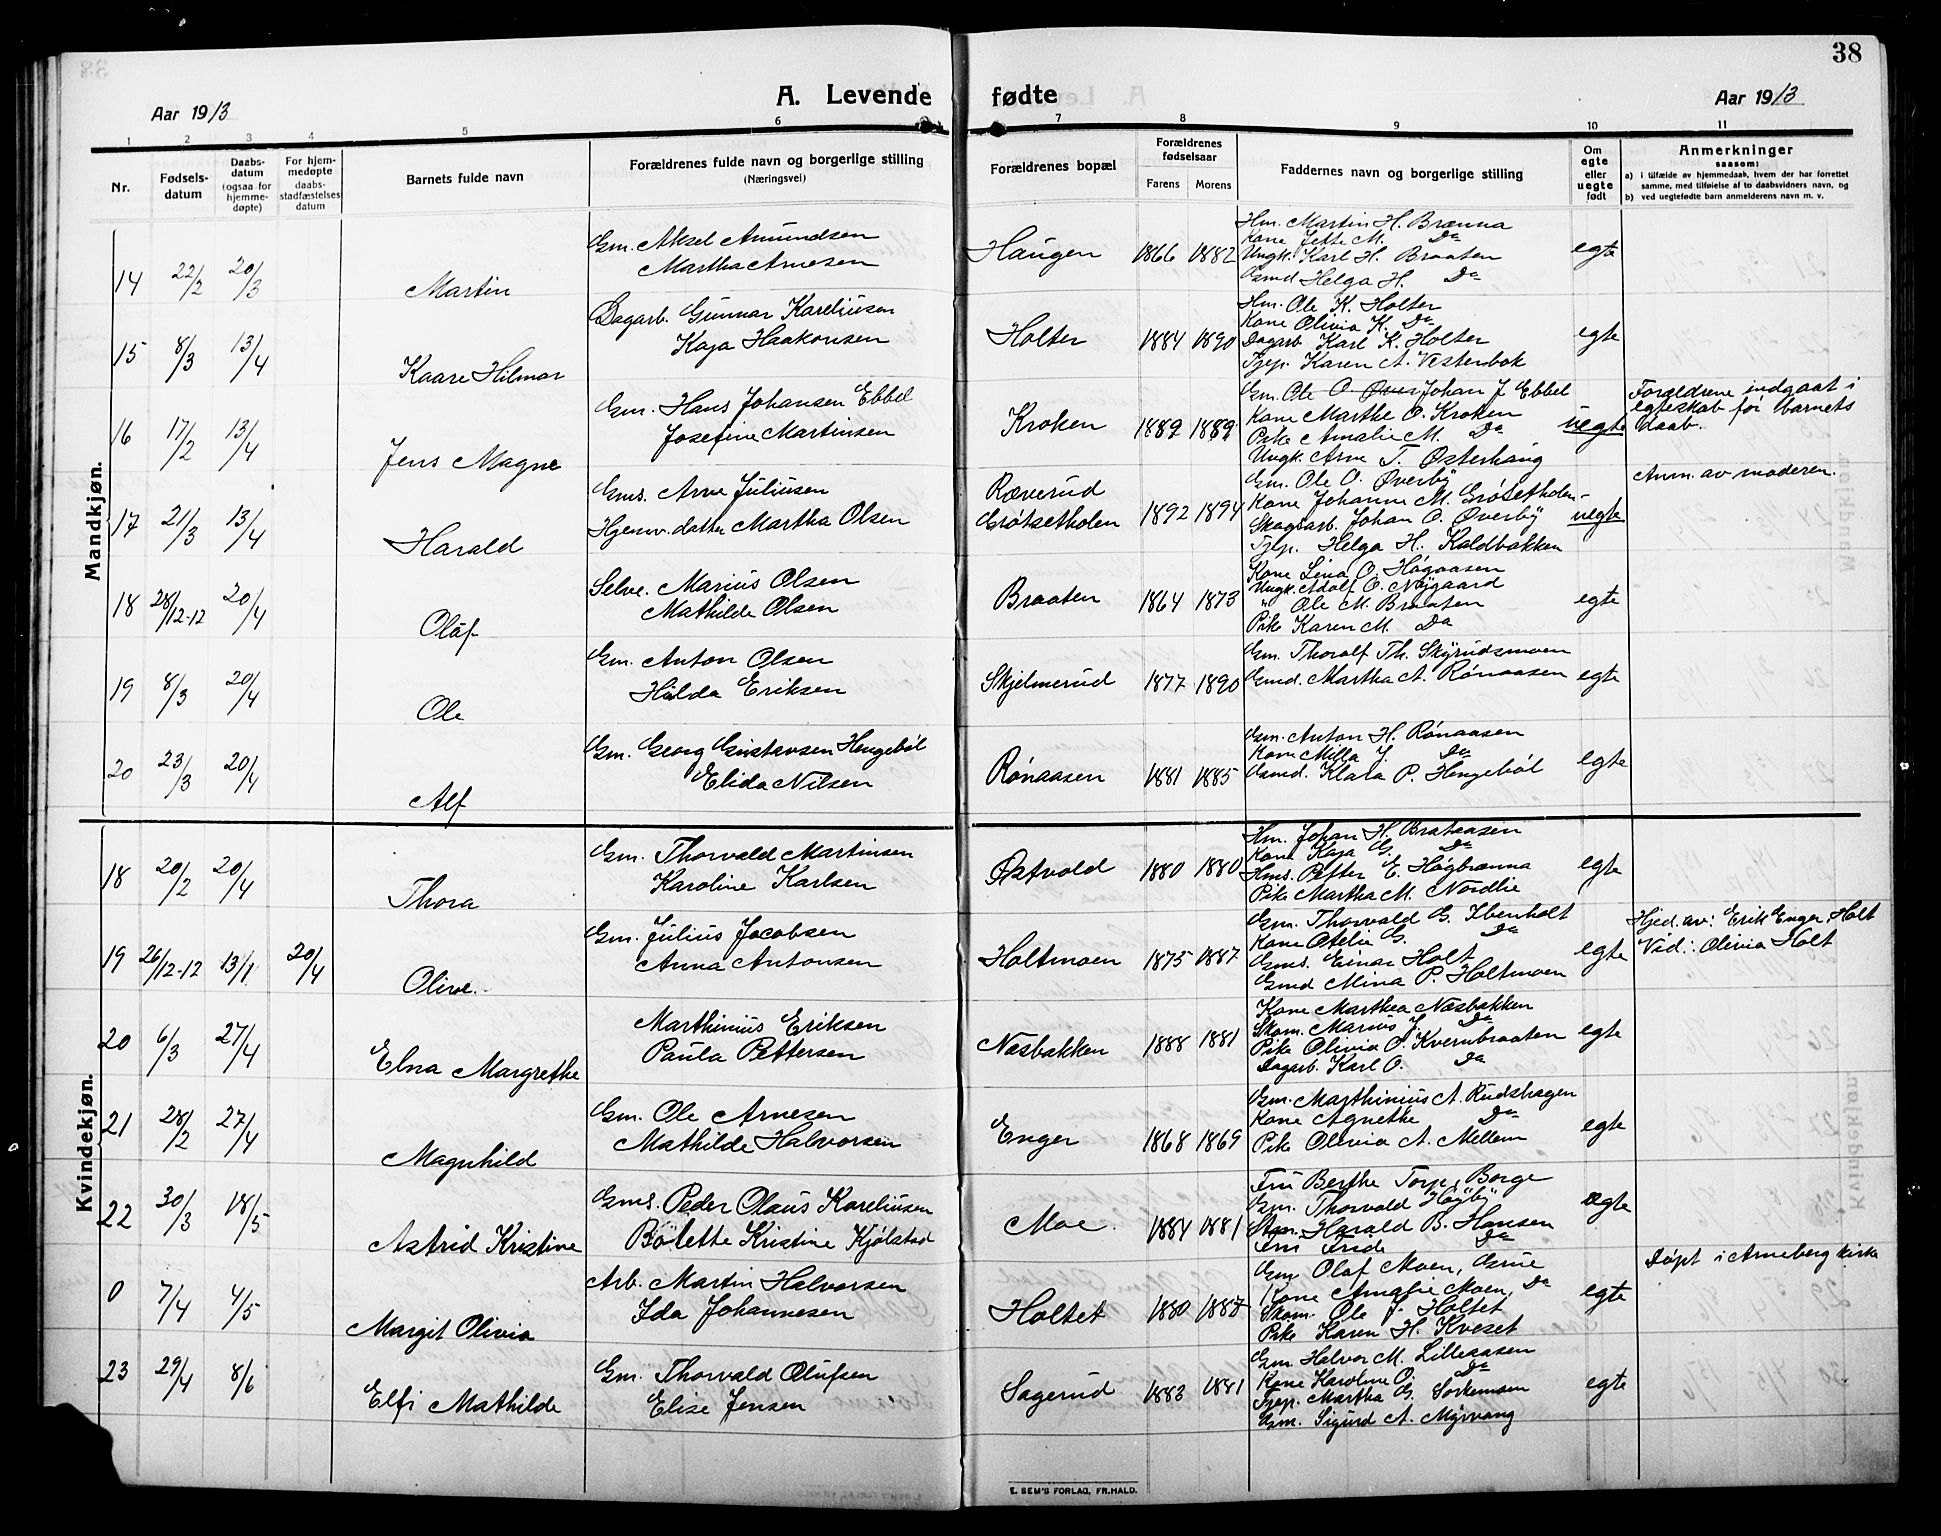 38
A. Levende fødte
Aar 1913
Aar 1913
1 2 3 4 5 6 7 8 9 10 11
Nr.
Fødsels-
datum
Daabs-
datum
(ogsaa for
hjemme-
døpte)
For hjem-
medøpte
daabs-
stadfæstelses
datum
Barnets fulde navn
Forældrenes fulde navn og borgerlige stilling
(Næringsvei)
Forældrenes bopæl
Forældrenes
fødselsaar
Farens Morens
Faddernes navn og borgerlige stilling
Om
egte
eller
uegte
født
Anmerkninger
saasom:
a) i tilfælde av hjemmedaab, hvem der har forrettet
samme, med tilføielse av to daabsvidners navn, og
b) ved uegtefødte barn anmelderens navn m. v.
Mandkjøn.
14 22/2 20/3 Martin
Gm. Aksel Amundsen
Martha Arnesen
Haugen 1866 1882
Hm. Martin H. Brænna
Kone Jette M. Do
Ungk. Karl H. Braaten
Gsmd Helga H. Do
egte
15 8/3 13/4 Kaare Hilmar
Dagarb. Gunnar Kareliusen
Kaja Haakonsen
Holter 1884 1890
Hm. Ole K. Holter
Kone Olivia K. Do
Dagarb Karl K. Holter
Tjep. Karen A. Vestenbok
egte
16 17/2 13/4 Jens Magne
Gm. Hans Johansen Ebbel
Josefine Martinsen
Kroken 1889 1889
Gm. Ole O. Over Johan J. Ebbel
Kone Marthe O. Kroken
Pike Amalie M. Do
Ungk. Arne T. Østerhaug
uegte
Forældrene indgaat i
egteskab før barnets
daab.
17 21/3 13/4 Harald
Gms. Arne Juliusen
Hjemv. datter Martha Olsen
Ræverud
Grøtsetholen 1892 1894
Gm. Ole O. Øverby
Kone Johanne M. Grøtsetholen-
Skogsarb. Johan O. Øverby
Tjep. Helga H. Kaldbakken
uegte
Anm. av moderen.
18 28/12-12 20/4 Olaf
Selve. Marius Olsen
Mathilde Olsen
Braaten 1864 1873
Kone Lina O. Høgaasen
Ungk. Adolf O. Nygaard
" Ole M. Braaten
Pike Karen M. Do
egte
19 8/3 20/4 Ole
Gm. Anton Olsen
Hilda Eriksen
Skjelmerud 1877 1890
Gm. Thoralf Th. Skyrudsmoen
Gmd. Martha A. Rønaasen
egte
20 23/3 20/4 Alf
Gm. Georg Gustavsen Hengebøl
Elida Nilsen
Rønaasen 1881 1885
Gm. Anton H. Rønaasen
Kone Milla J. Do
Gsmd. Klara P. Hengebøl
egte
Kvindekjøn.
18 20/2 20/4 Thora
Gm. Thorvald Martinsen
Karoline Karlsen
Østvold 1880 1880
Hm. Johan H. Brataasen
Kone Kaja G. Do
Hms. Petter E. Høgbrænna
Pike Martha M. Nordlie
egte
19 26/12-12 13/1 20/4 Olive.
Gm. Julius Jacobsen
Anna Antonsen
Holtmoen 1875 1887
Gm. Thorvald G. Ibenholt
Kone Otelie G. Do
Gms. Einar Holt
Gmd Mina P. Holtmoen
egte
Hjed. av: Erik Enger, Holt
Vid: Olivia Holt
20 6/3 27/4 Elna Margrethe
Marthinius Eriksen
Paula Pettersen
Næsbakken 1888 1881
Kone Marthea Næsbakken
Skom. Marius J. Do
Pike Olivia O. Kvernbraaten
Dagarb. Karl O. Do
egte
21 28/2 27/4 Magnhild
Gm. Ole Arnesen
Mathilde Halvorsen
Enger 1868 1869
Gm. Marthinius A. Rudshagen
Kone Agnethe Do
Pike Olivia A. Mellem
egte
22 30/3 18/5 Astrid Kristine
Gms. Peder Olaus Kareliusen
Bolette Kristine Kjølstad
Moe. 1884 1881
Fru Berthe Torp, Borge
Gm. Thorvald Høyby
Harald B. Hansen
Fru Frida Do
egte
0 7/4 4/5 Margit Olivia
Arb. Martin Halvorsen
Ida Johannesen
Holtet 1880 1887
Gm. Olaf Moen, Grue
Kone Amalie Moen, Do
Skom. Ole J. Holtet
Pike Karen H. Kveset
egte
Døpt i Arneberg kirke
23 29/4 8/6 Elfi Mathilde
Gm. Thorvald Olufsen
Elise Jensen
Sagerud 1883 1881
Gm. Halvor M. Lilleaasen
Kone Karoline O. Do
Tjep. Martha G. Sorkemoen
Gm. Sigurd A. Myrvang
egte
E. SEM'S FORLAG, FR.HALD.